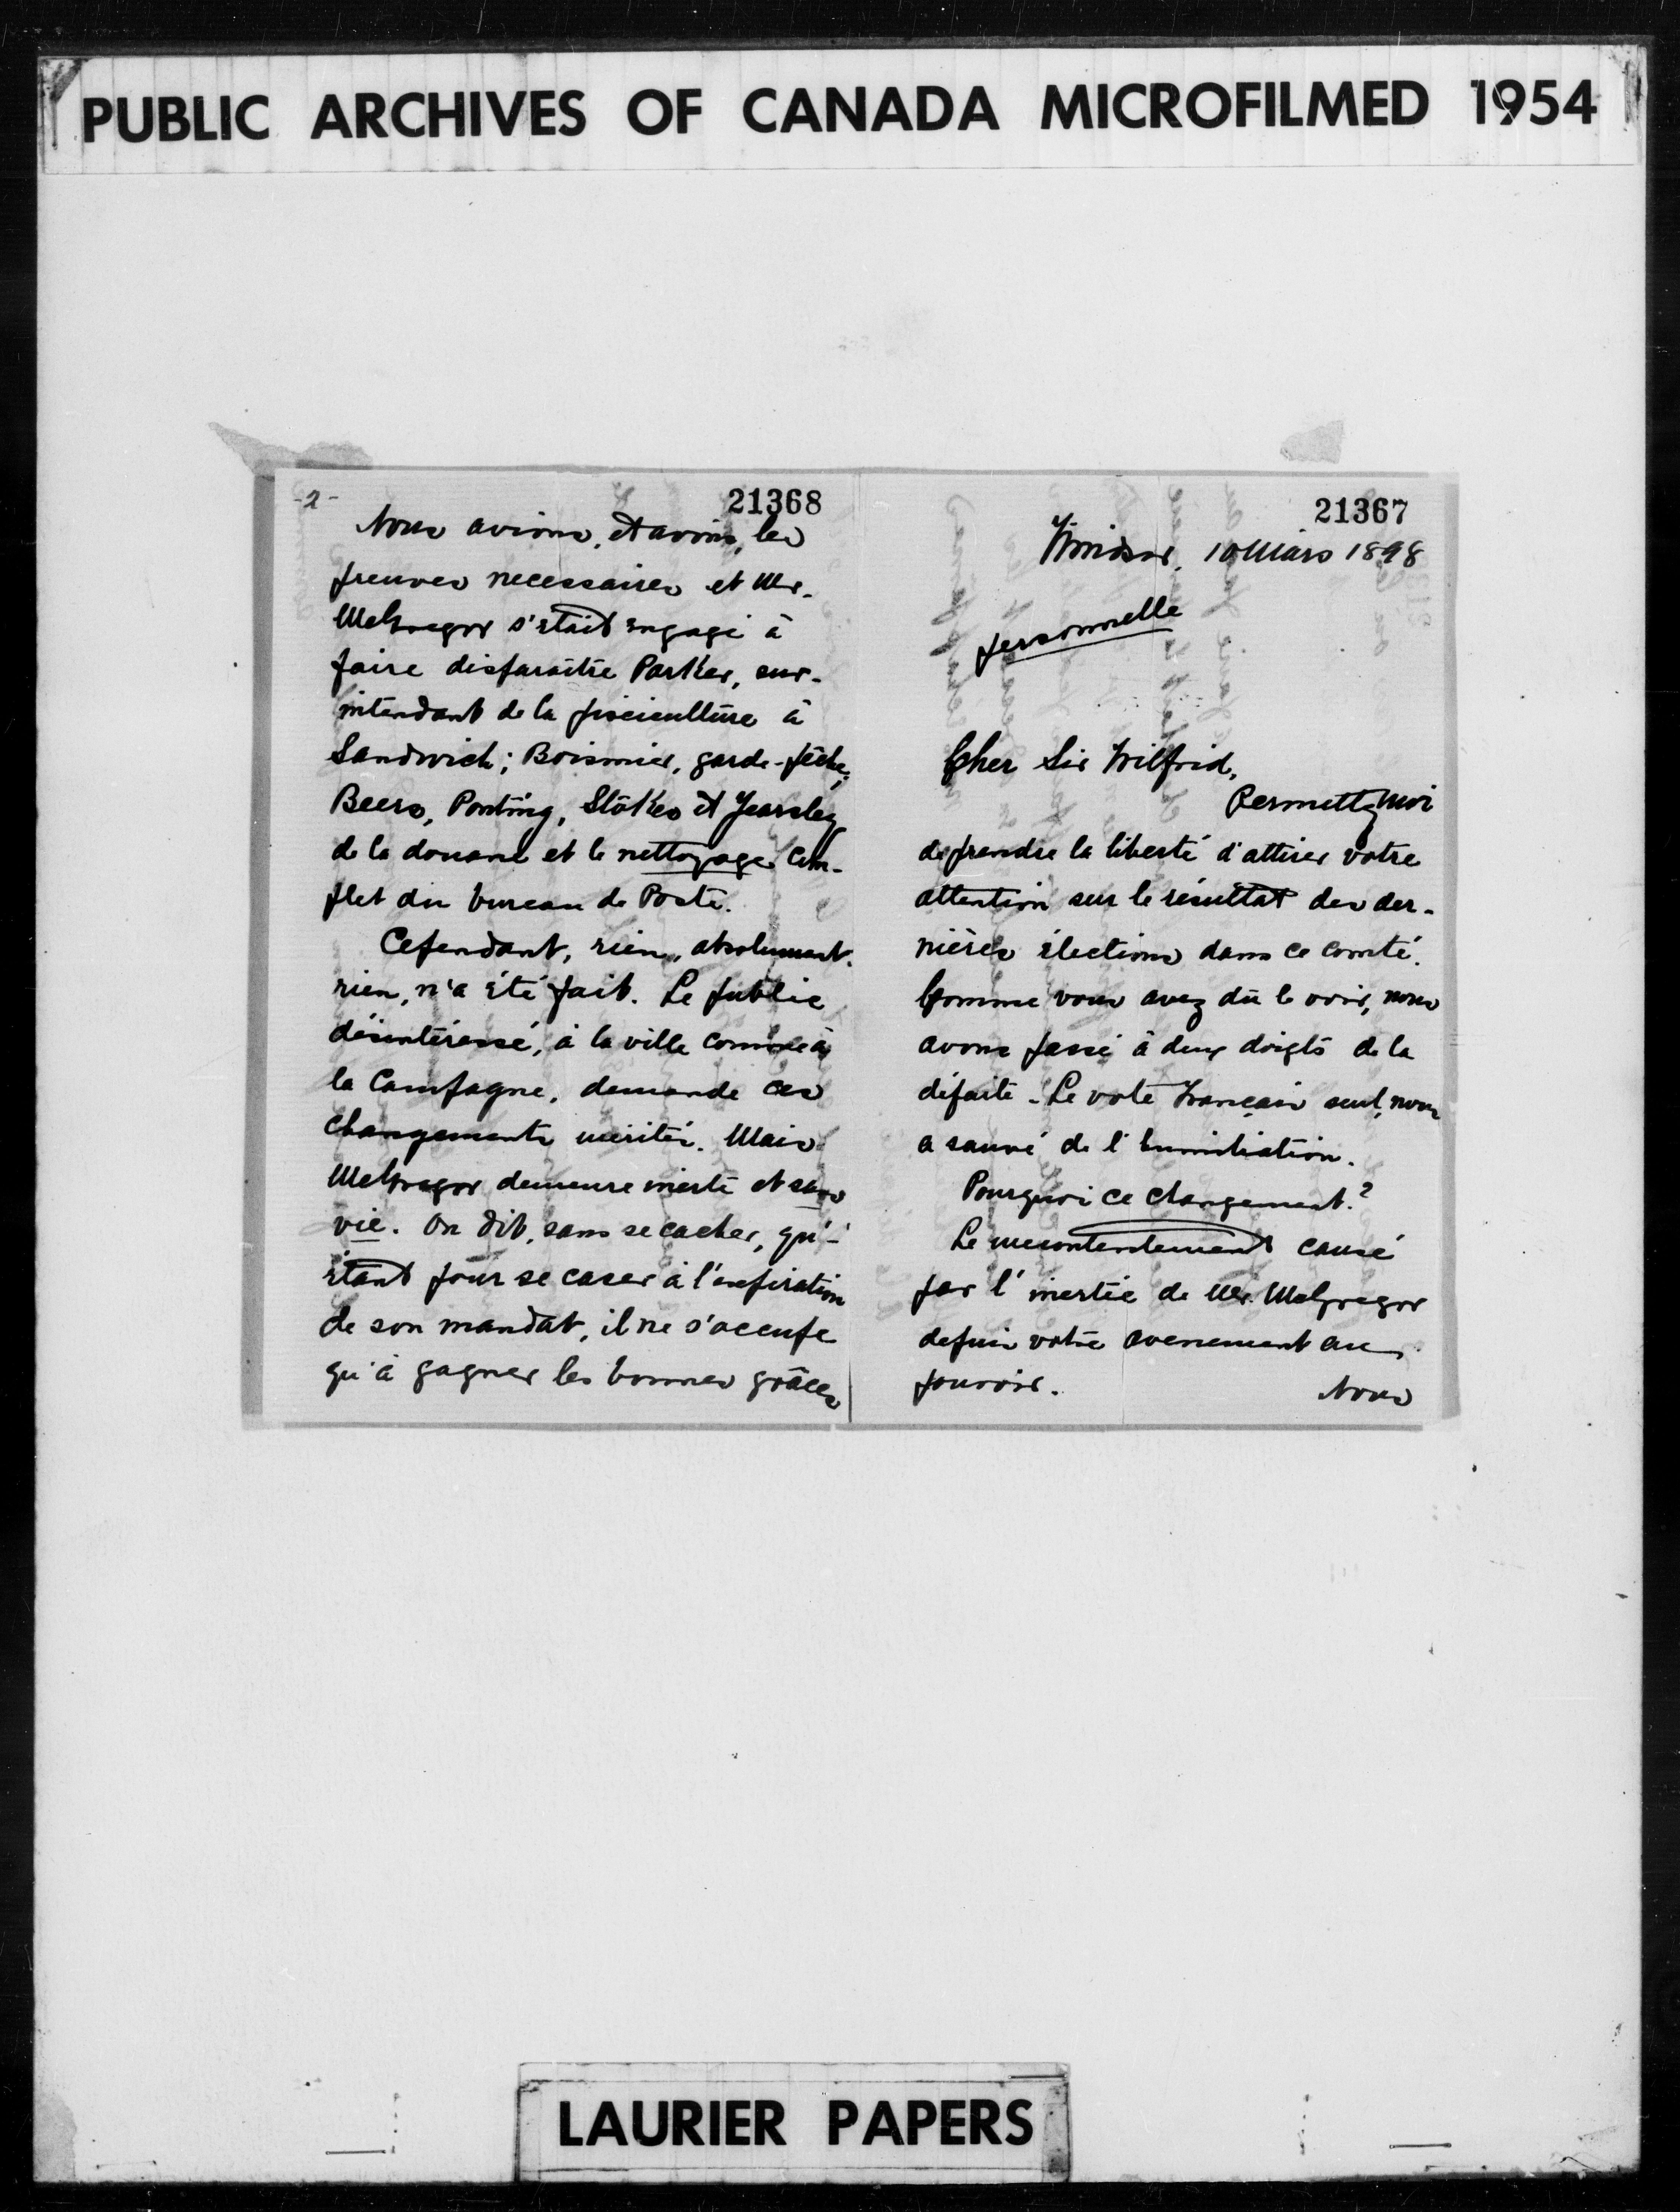 PUBLIC ARCHIVES OF CANADA MICROFILMED 1954
21367
Windsor, 10 Mars 1898
personnelle
Cher Sir Wilfrid,
Permettez moi
de prendre la liberté d'attirer votre
attention sur le résultat des der-
nières élections dans ce comté.
Comme vous avez dû le voir, nous
avons passé à deux doigts de la
défaite. Le vote Français seul, nous
a sauvé de l'humiliation.
Pourquoi ce changement?
Le mecontentement causé
par l'inertie de Mr. McGregor
depuis votre avenement au
pouvoir.
Nous
-2-
21368
Nous avions, et avons, les
preuves necessaires et Mr.
McGregor s'était engagé à
faire disparaître Parker, sur-
intendant de la pisciculture à
Sandwich; Boismier, garde-pêche;
Beers, Ponting, Stokes et Yearsley
de la douane et le nettoyage com-
plet du bureau de Poste.
Cependant, rien, absolument
rien, n'a été fait. Le public
désintéressé, à la ville comme à
la Campagne, demande ces
changements mérités. Mais
McGregor demeure inerte et sans
vie. On dit, sans se cacher, qu'-
étant pour se caser à l'expiration
de son mandat, il ne s'occupe
qu'à gagner les bonnes grâces
LAURIER PAPERS